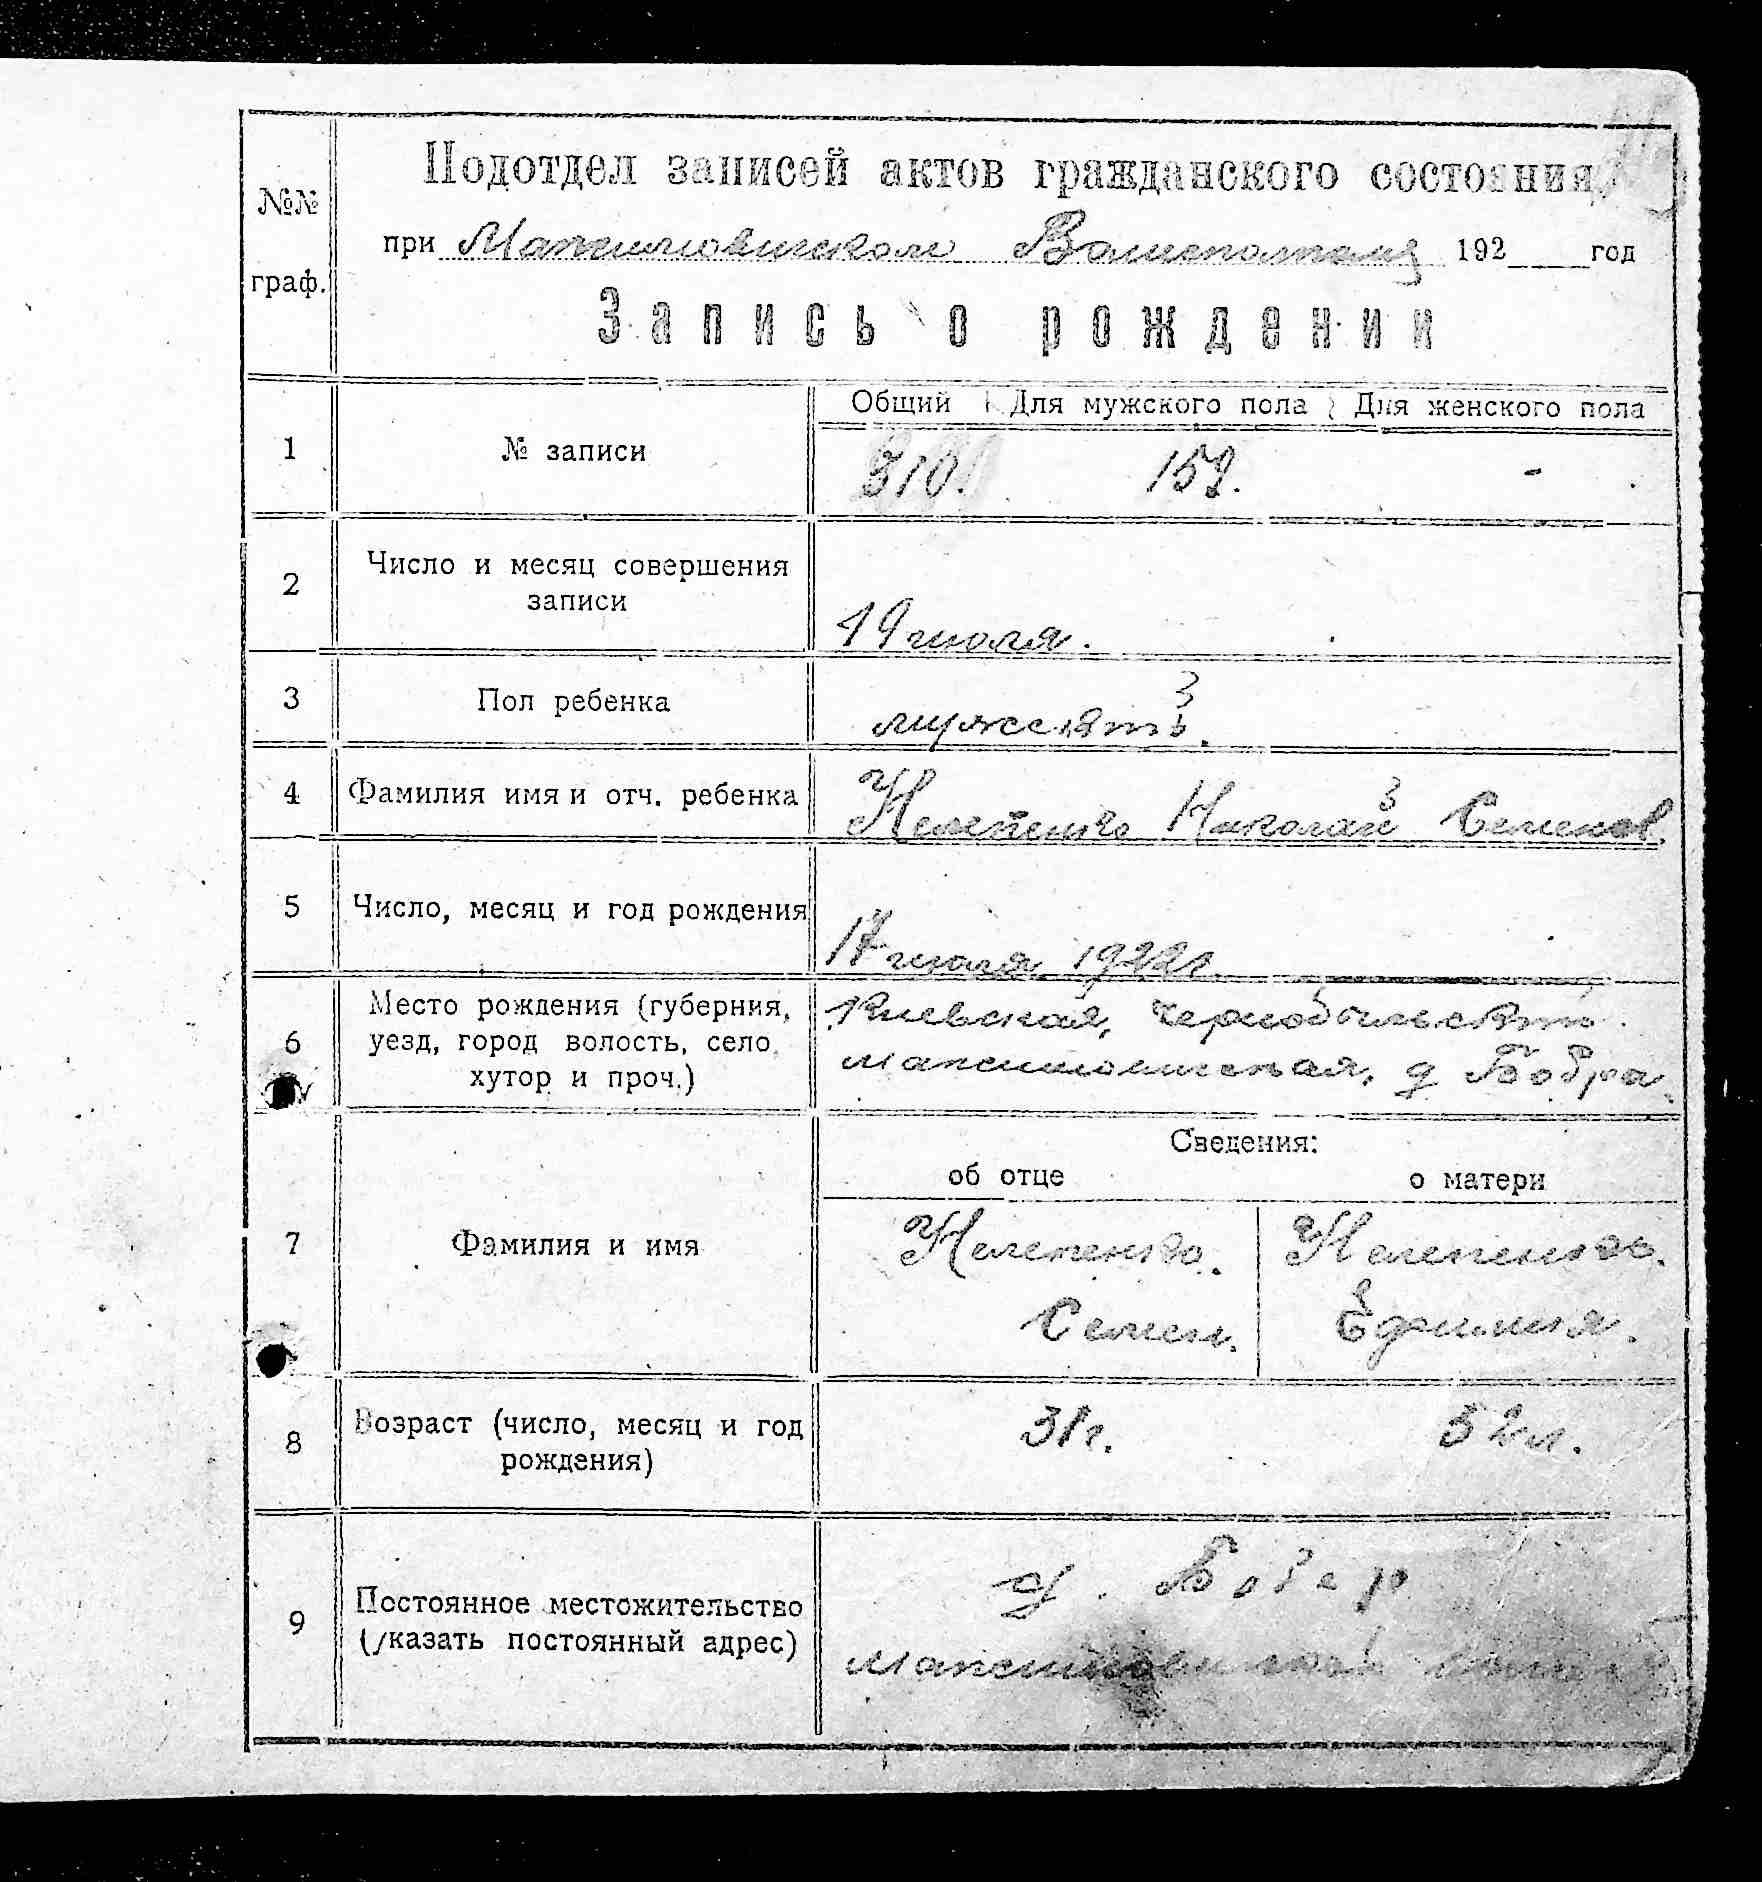 №№ граф.
Подотдел записей актов гражданского состояния
при Максимовическом Волисполкоме 192 год
Запись о рождении
Общий Для мужского пола Для женского пола
1 № записи 310. 159. -
2 Число и месяц совершения записи
19 июля.
3 Пол ребенка
4 Фамилия имя и отч. ребенка Николай Семенов.
5 Число, месяц и год рождения
17 июля 1922г.
6 Место рождения (губерния, уезд, город волость, село хутор и проч.)
Киевская, Чернобыльский
Максимовическая, д Бобра
Сведения:
об отце о матери
7 Фамилия и имя
Семен. Ефимия.
8 Возраст (число, месяц и год рождения) 31г. 32л.
9 Постоянное местожительство (указать постоянный адрес)
д. Бобер
Максимовической